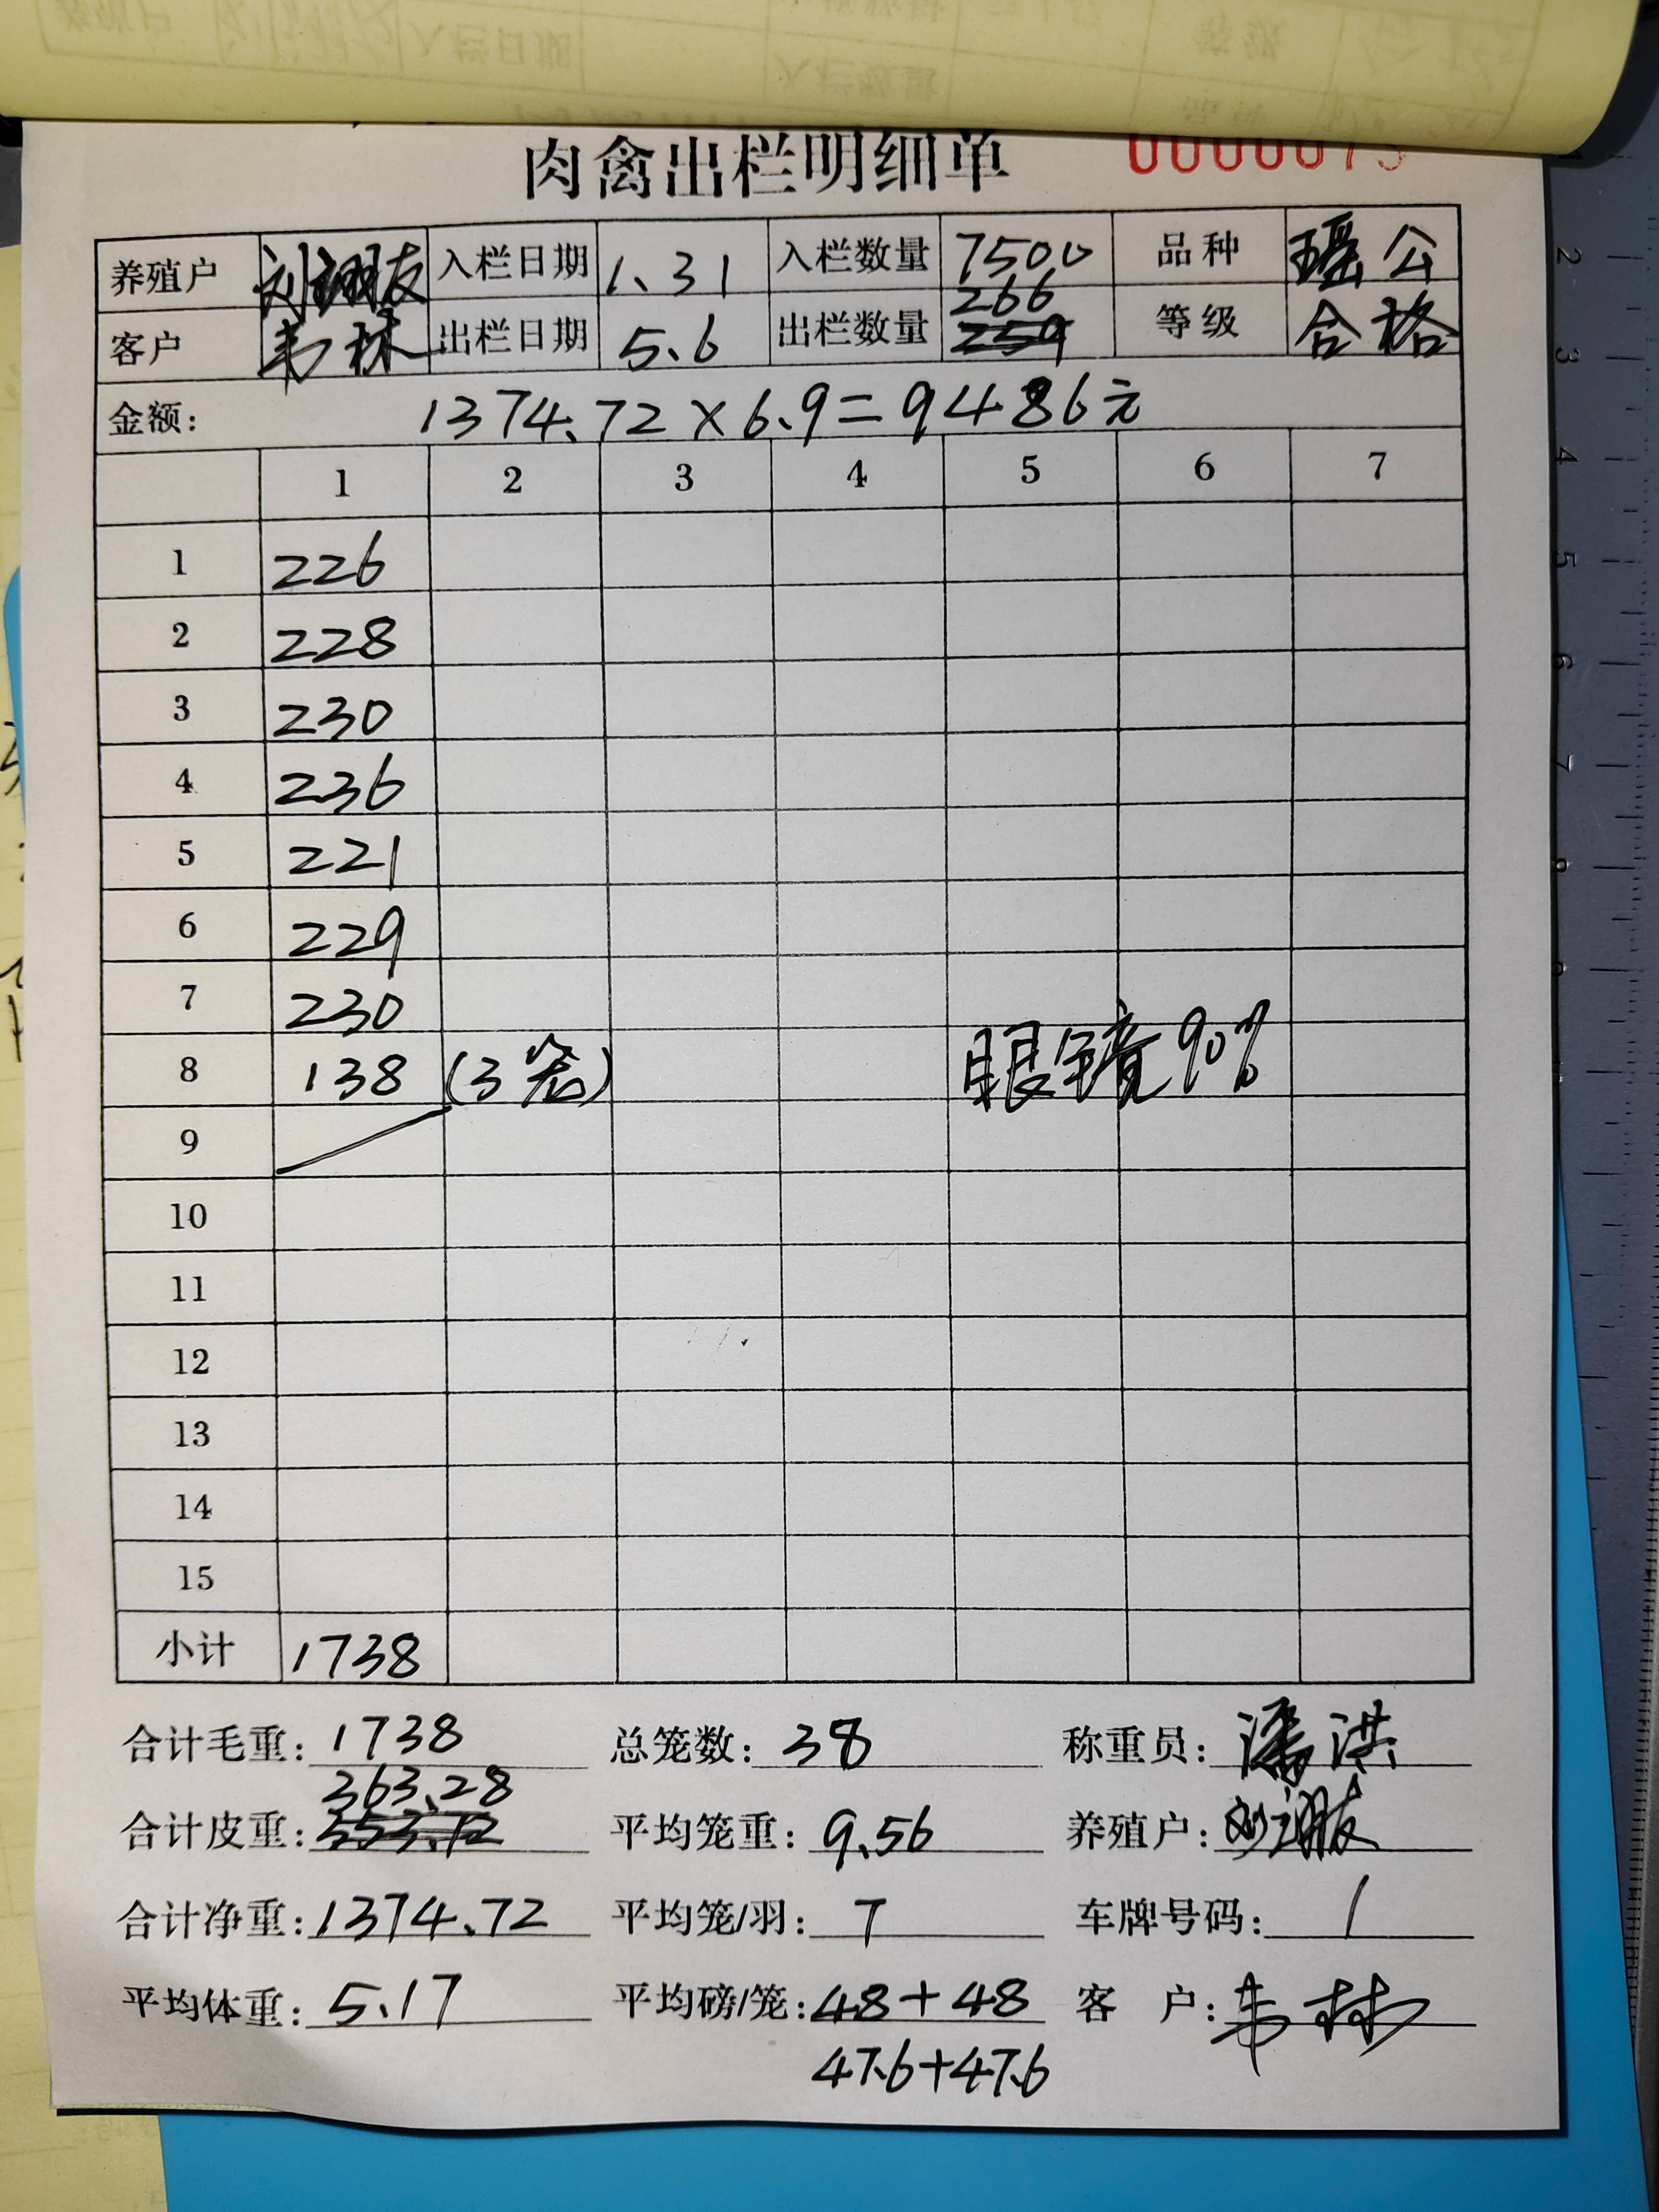 肉禽出栏明细单
养殖户 入栏日期 1.31 入栏数量 7500 品种 瑶公
266
客户 韦林 出栏日期 5.6 出栏数量 259 等级 合格
金额: 1374.72×6.9=9486元
1 2 3 4 5 6 7
1 226
2 228
3 230
4 236
5 221
6 229
7 230
8 138 (3笼) 眼镜90%
9
10
11
12
13
14
15
小计 1738
合计毛重: 1738 总笼数: 38 称重员: 潘洪
363.28
合计皮重: 353.72 平均笼重: 9.56 养殖户:
合计净重: 1374.72 平均笼/羽: 7 车牌号码: /
平均体重: 5.17 平均磅/笼: 48+48 客 户: 韦林
47.6+47.6